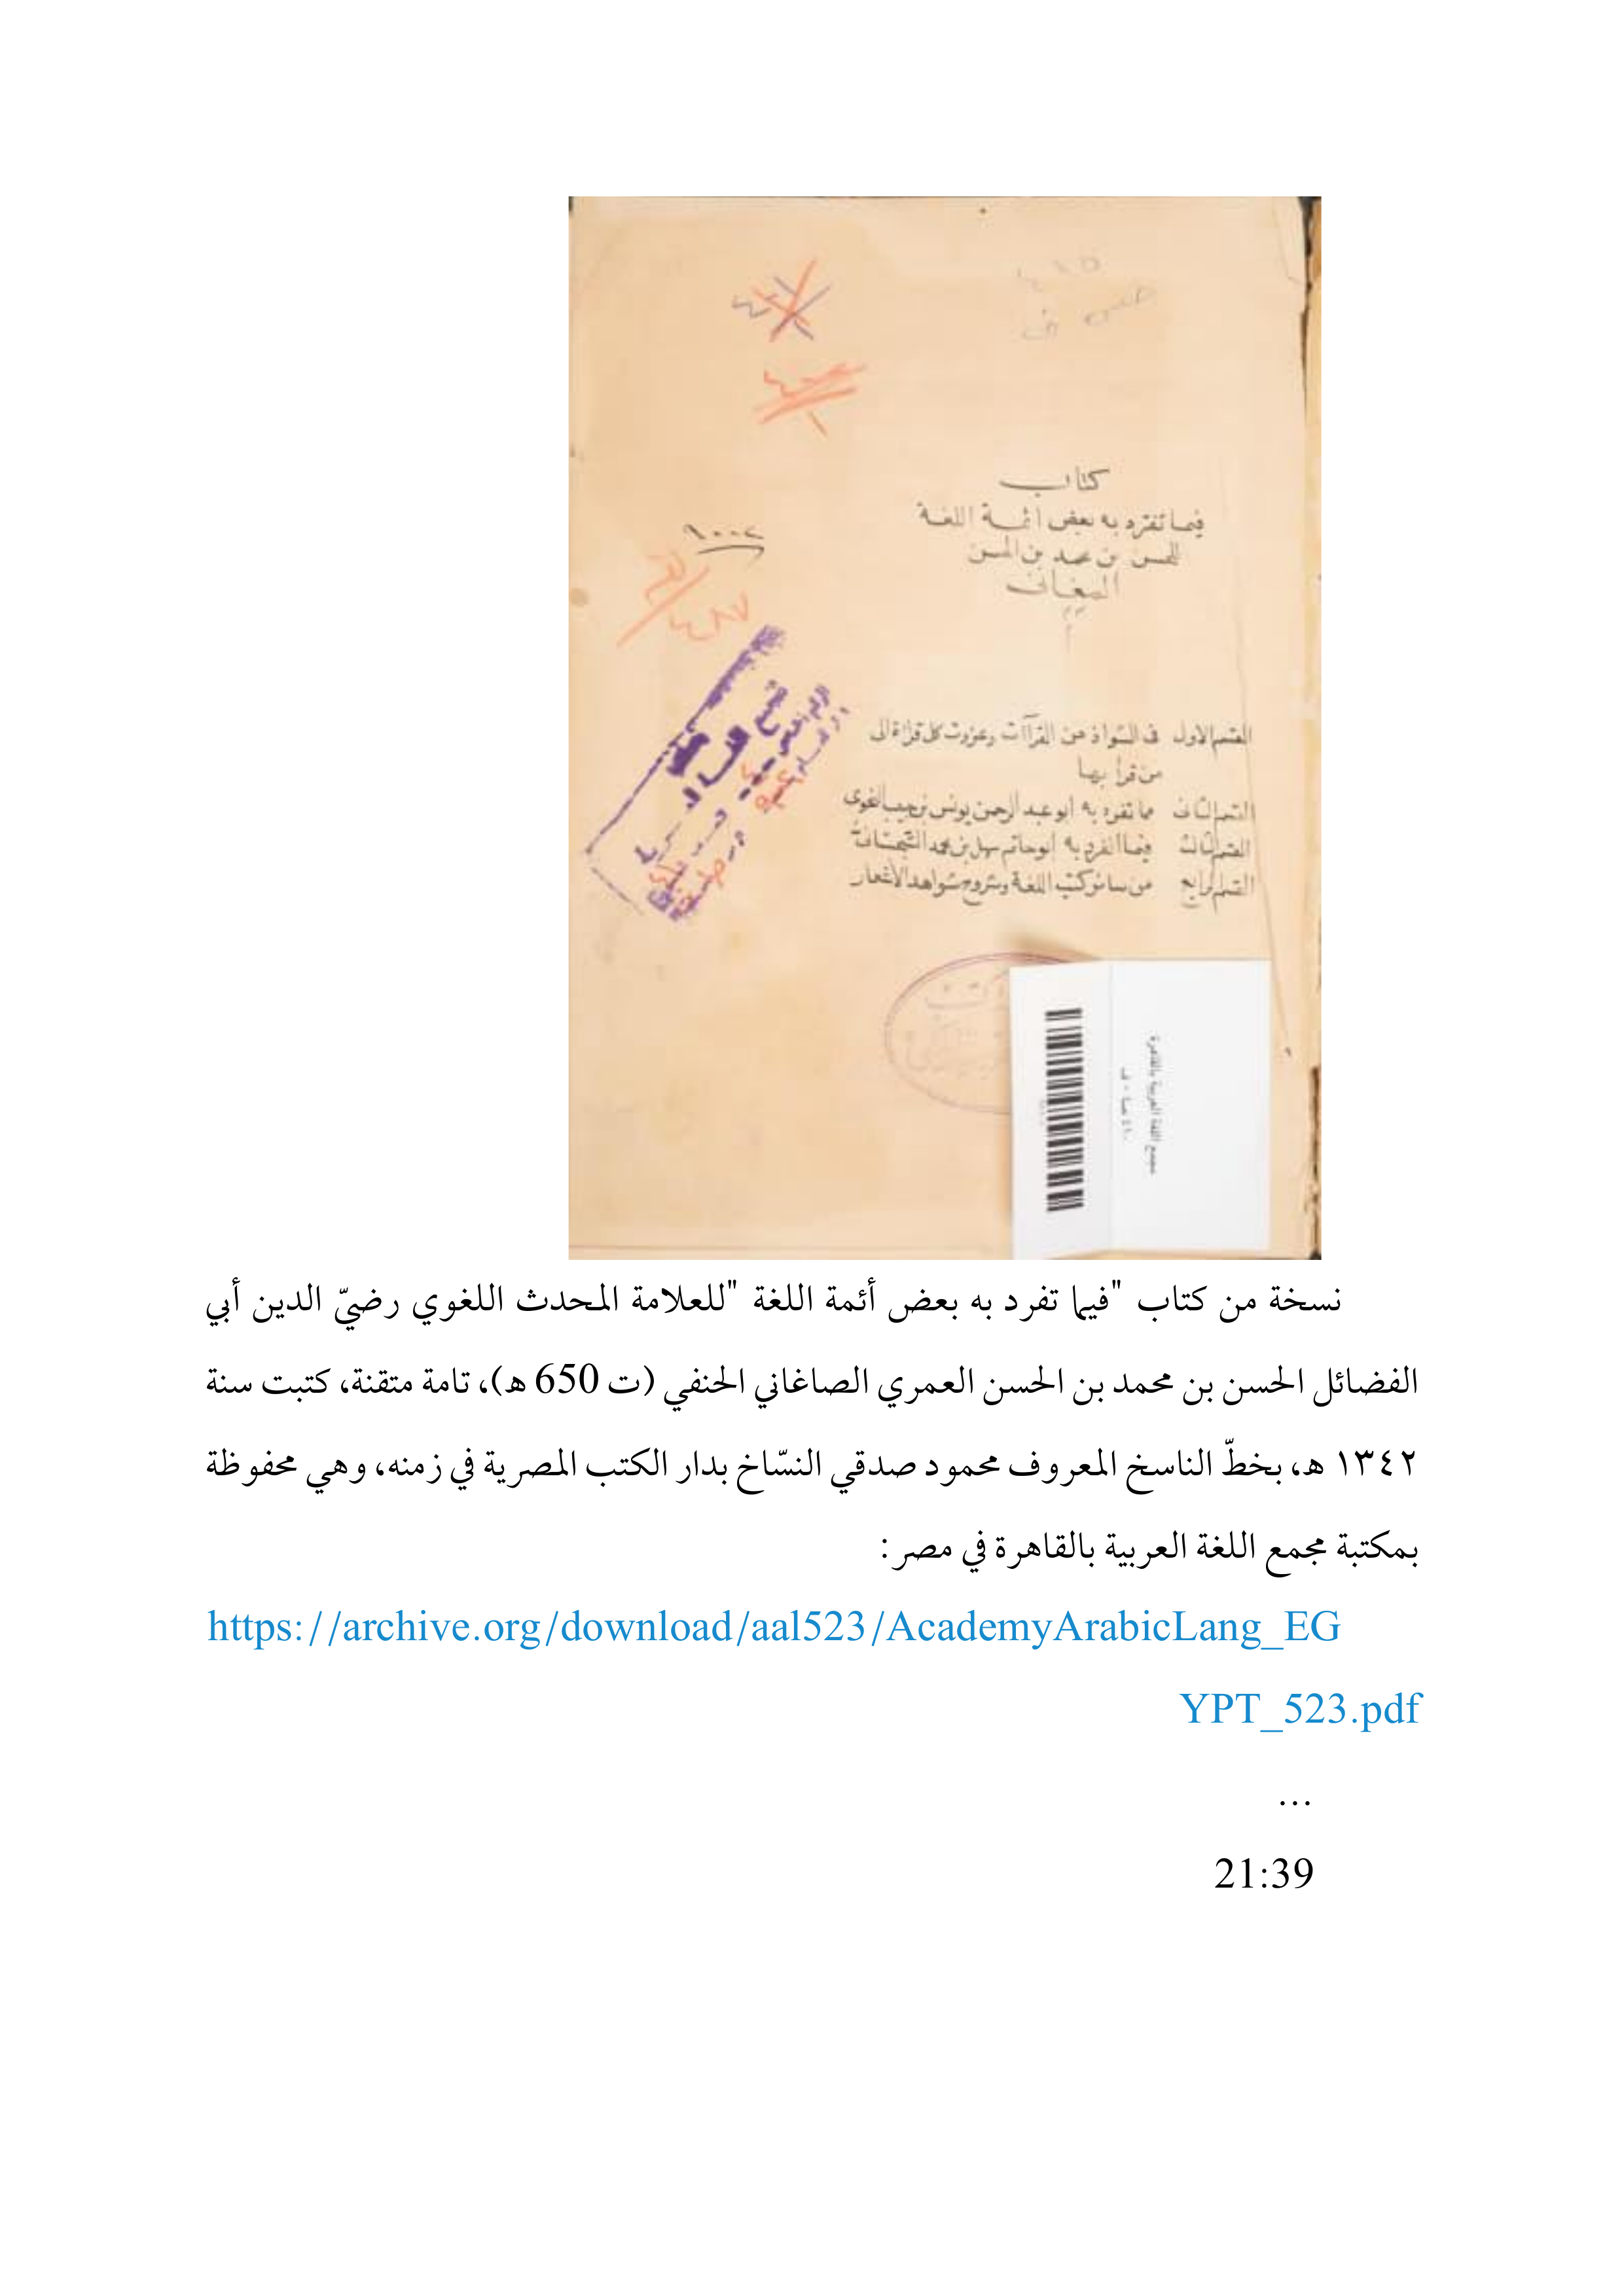 كتاب
فيما تفرد به بعض ائمة اللغة
للحسن بن محمد بن الحسن
القسم الاول في الشواذ من القرآآت وعزوت كل قراءة الى
من قرأ بها
القسم الثانى ما تفرد به ابو عبد الرحمن يونس بن حبيب النحوى
القسم الثالث فيما انفرد به ابو حاتم سهل بن محمد السجستانى
القسم الرابع من سائر كتب اللغة وشروح شواهد الاشعار
مجمع اللغة العربية بالقاهرة
نسخة من كتاب "فيما تفرد به بعض أئمة اللغة "للعلامة المحدث اللغوي رضيّ الدين أبي
الفضائل الحسن بن محمد بن الحسن العمري الصاغاني الحنفي (ت 650 هـ)، تامة متقنة، كتبت سنة
١٣٤٢ هـ، بخطّ الناسخ المعروف محمود صدقي النسّاخ بدار الكتب المصرية في زمنه، وهي محفوظة
بمكتبة مجمع اللغة العربية بالقاهرة في مصر:
https://archive.org/download/aal523/AcademyArabicLang_EG
YPT_523.pdf
...
21:39